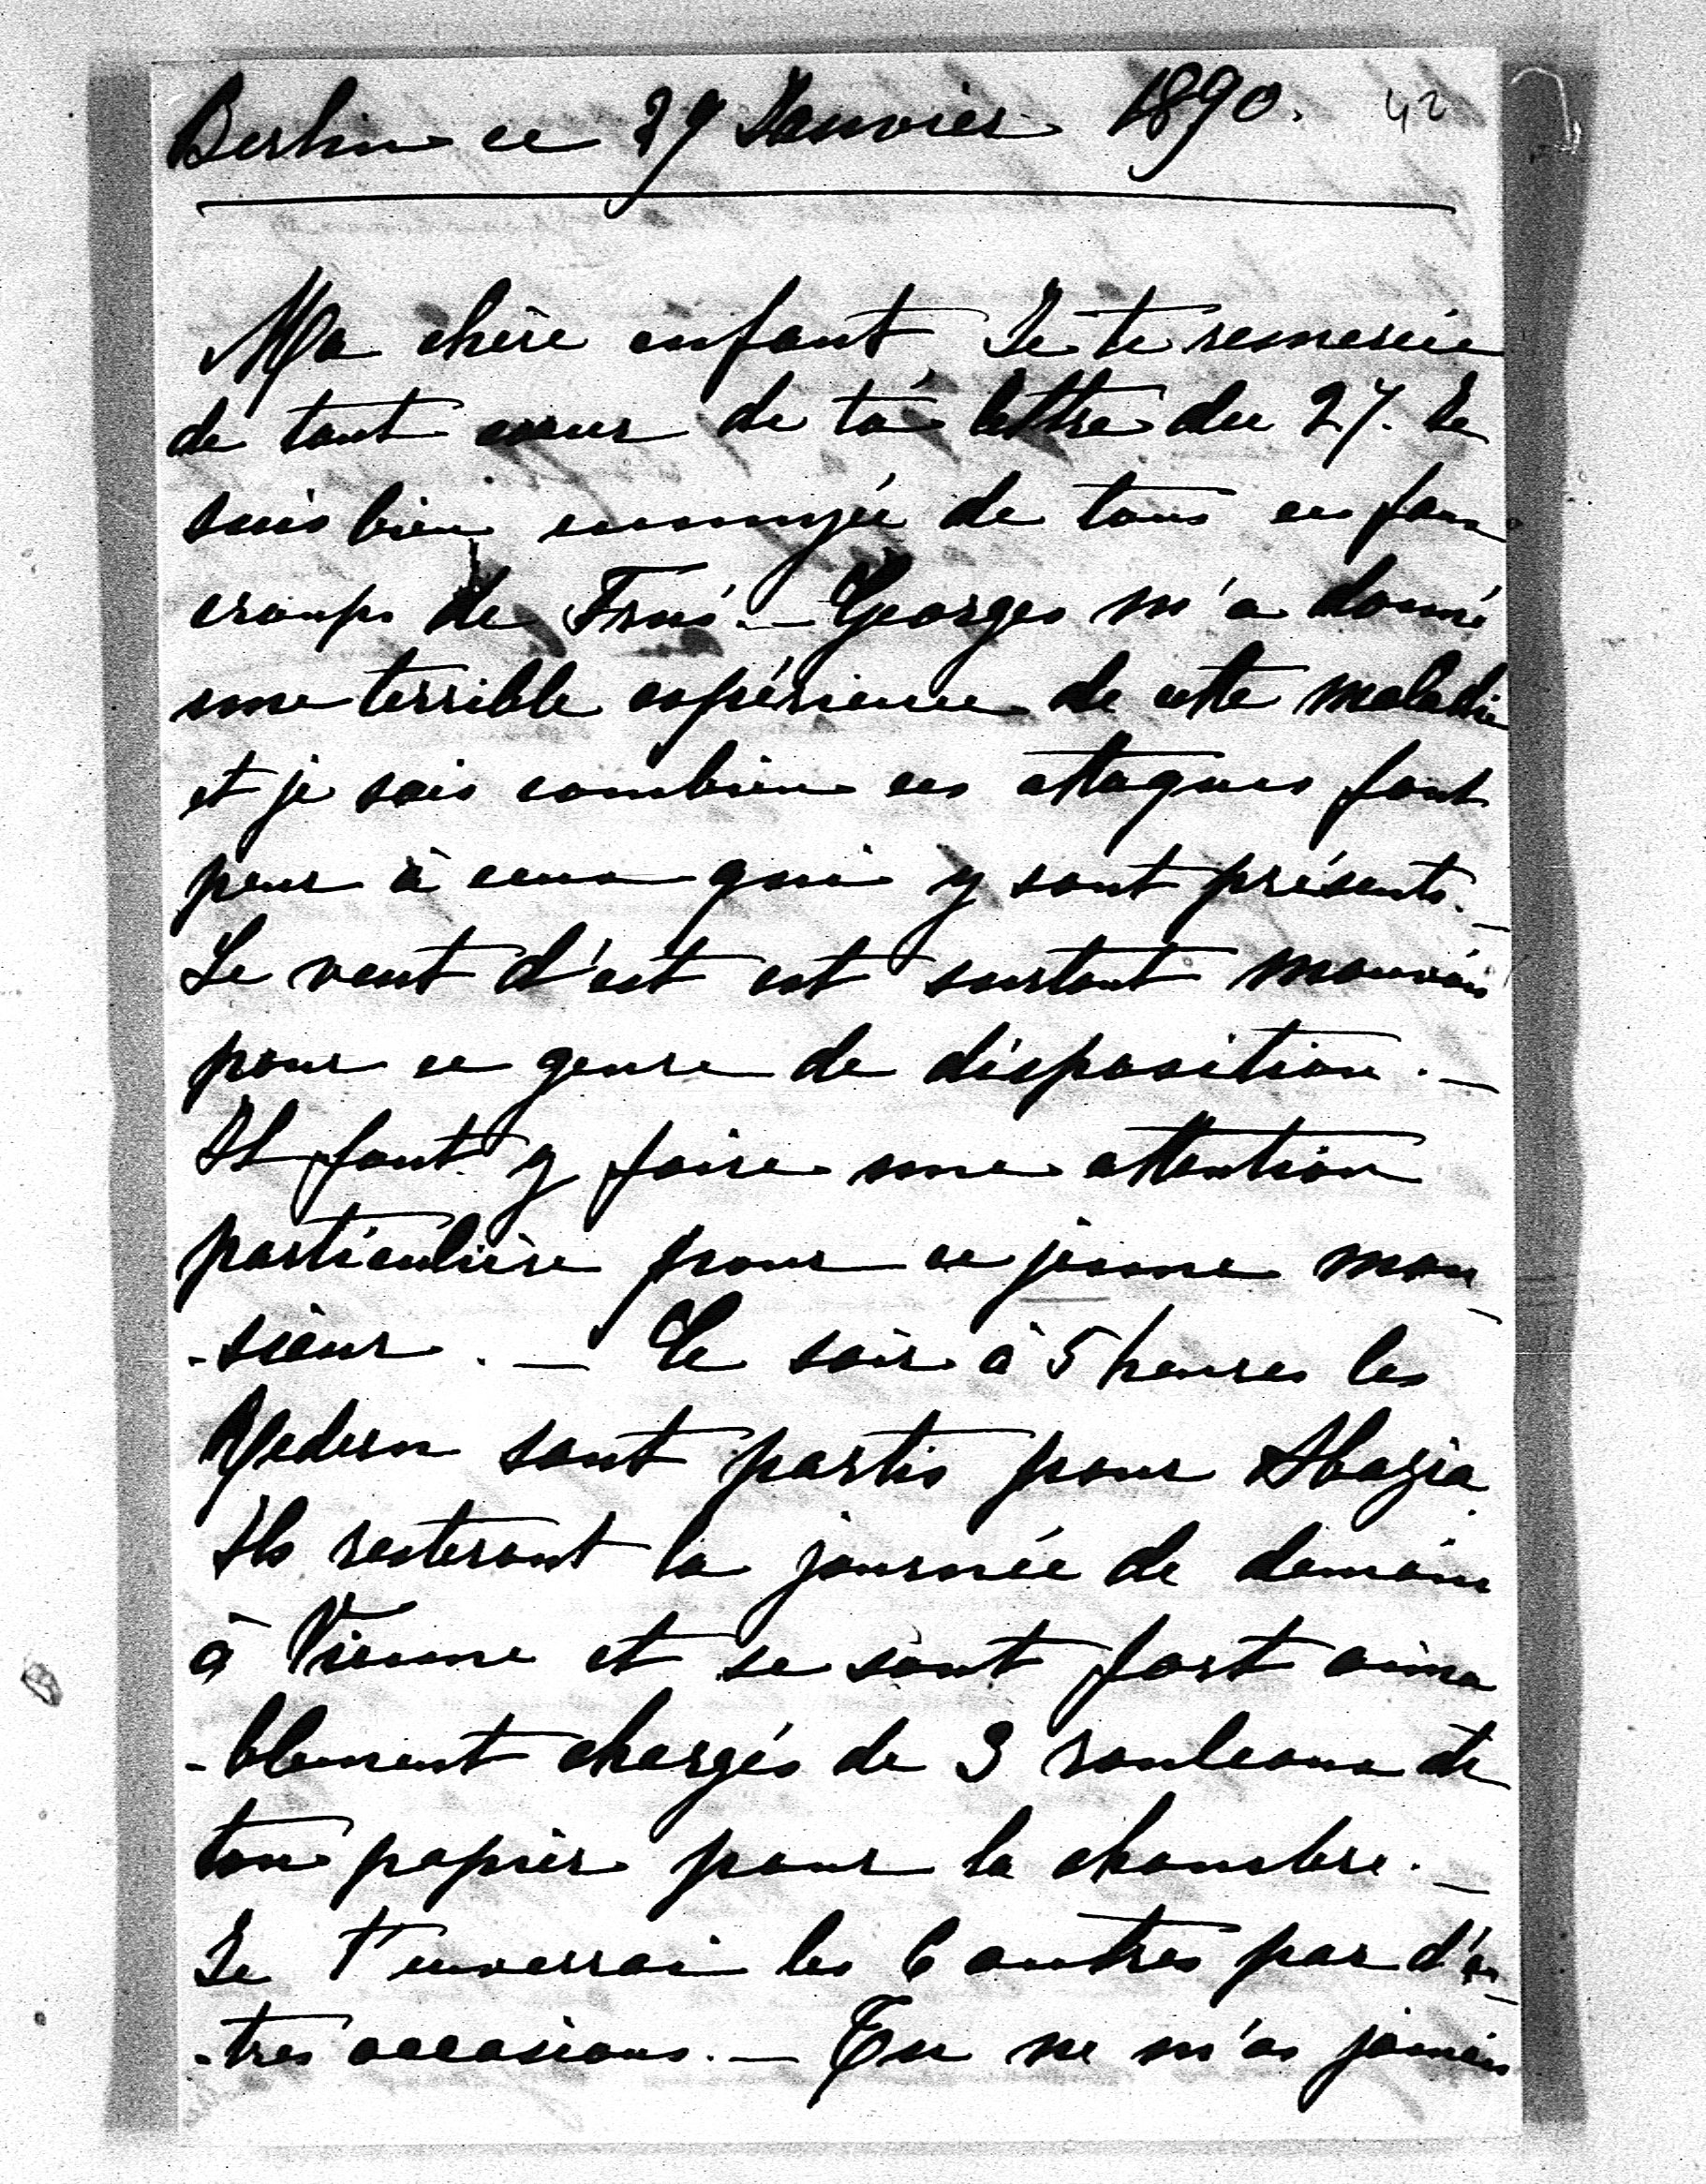 Berlin ce 29 Janvier 1890. 42
Ma chère enfant, Je te remercie
de tout cœur de ta lettre du 27. Je
suis bien ennuyée de tous ces faux
croups de
Georges m'a donné
une terrible expérience de cette maladie
et je sais combien ces attaques font
peur à ceux qui y sont présents. _
Le vent d'est est surtout mauvais
pour ce genre de disposition. _
Il faut y faire une attention
particulière pour ce jeune mon
-sieur. _ Ce soir à 5 heures les
sont partis pour Abazia.
Ils resteront la journée de demain
à Vienne et se sont fort aima
-blement chargés de 3 rouleaux de
ton papier pour la chambre. _
Je t'enverrai les 6 autres par d'au_
-tres occasions. _ Tu ne m'as jamais